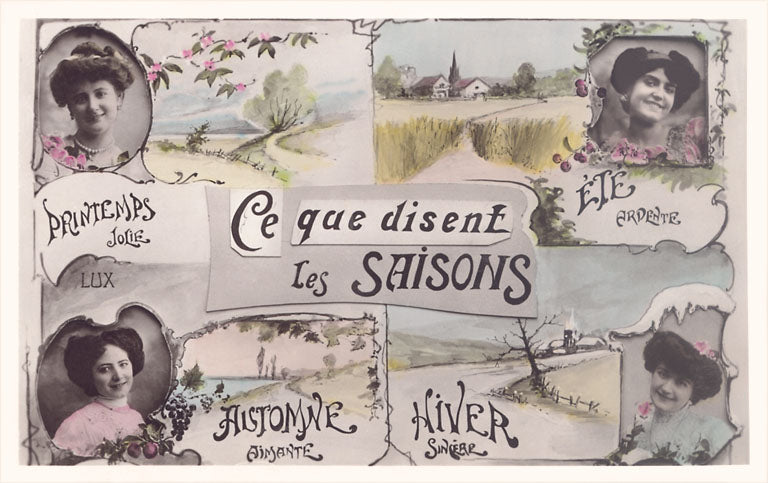 PRINTEMPS
JOLIE
ÉTÉ
ARDENTE
Ce que disent
les SAISONS
LUX
AUTOMNE
AIMANTE
HIVER
SINCÈRE